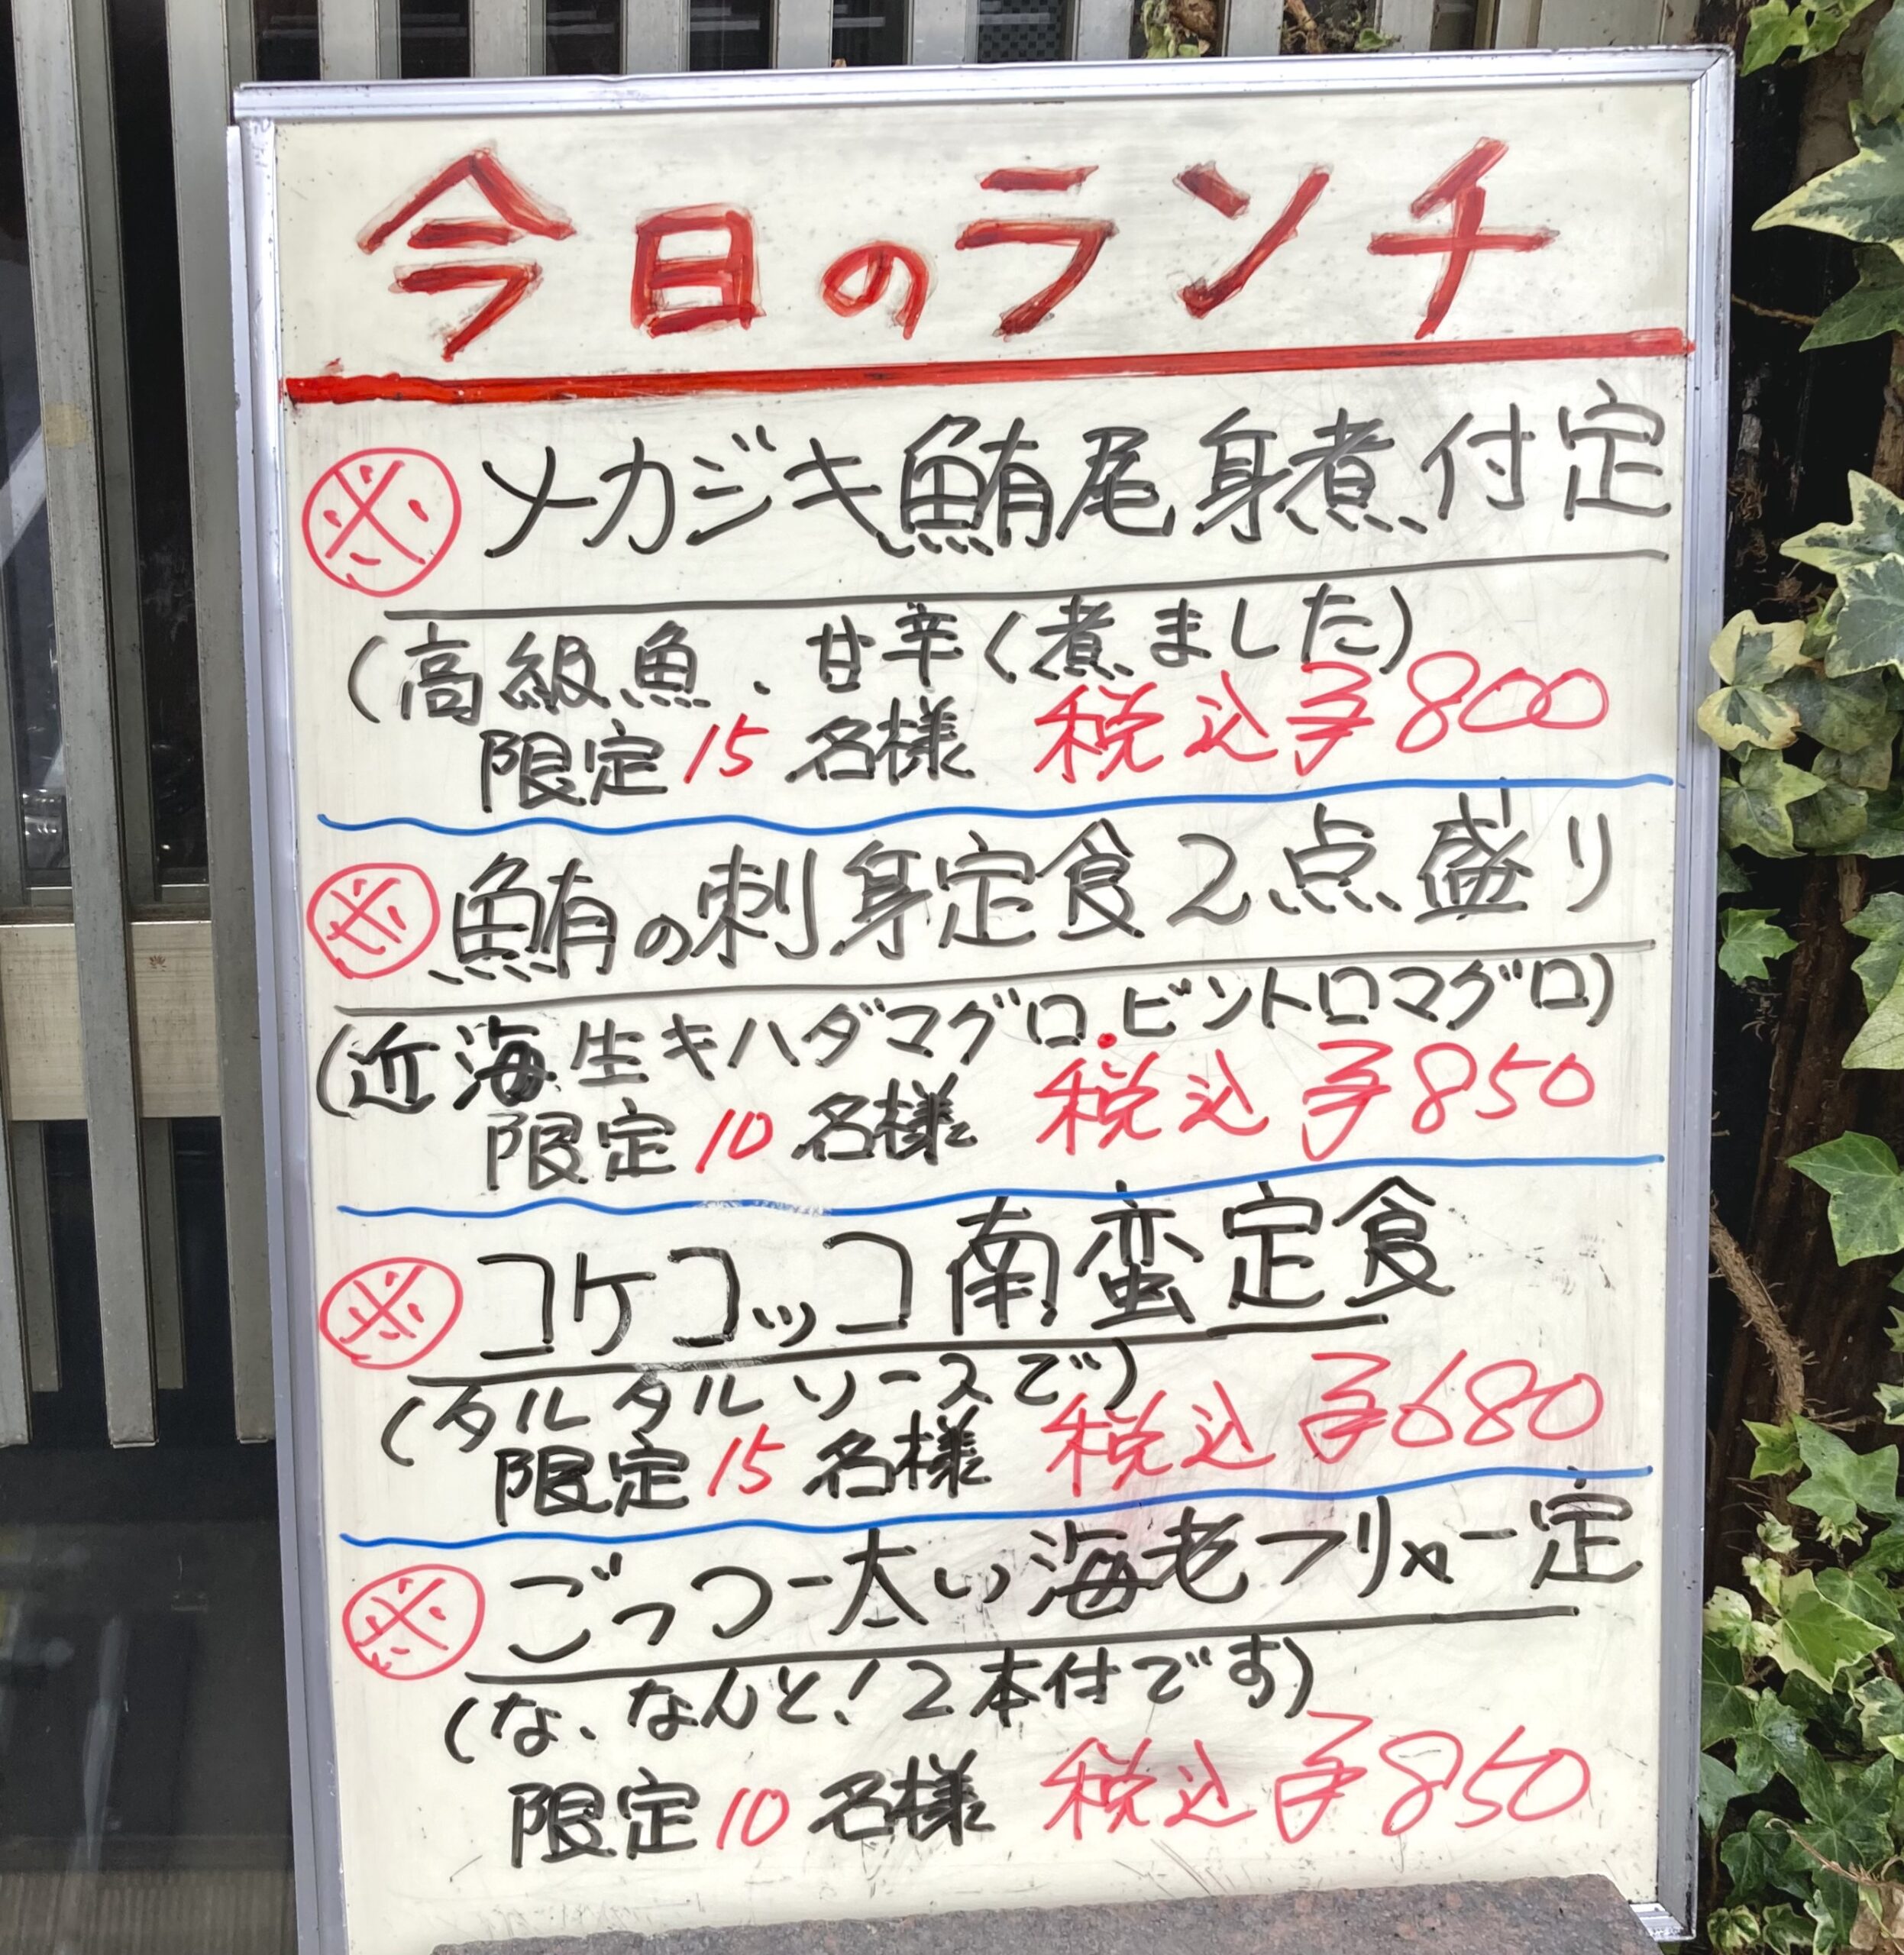 今日のランチ
※ メカジキ鮪尾身煮付定
(高級魚、甘辛く煮ました)
限定15名様 税込¥800
※ 鮪の刺身定食2点盛り
(近海生キハダマグロ.ビントロマグロ)
限定10名様 税込¥850
※ コケコッコ南蛮定食
(タルタルソースで)
限定15名様 税込¥680
※ ごっつー太い海老フリャー定
(な、なんと!2本付です)
限定10名様 税込¥850